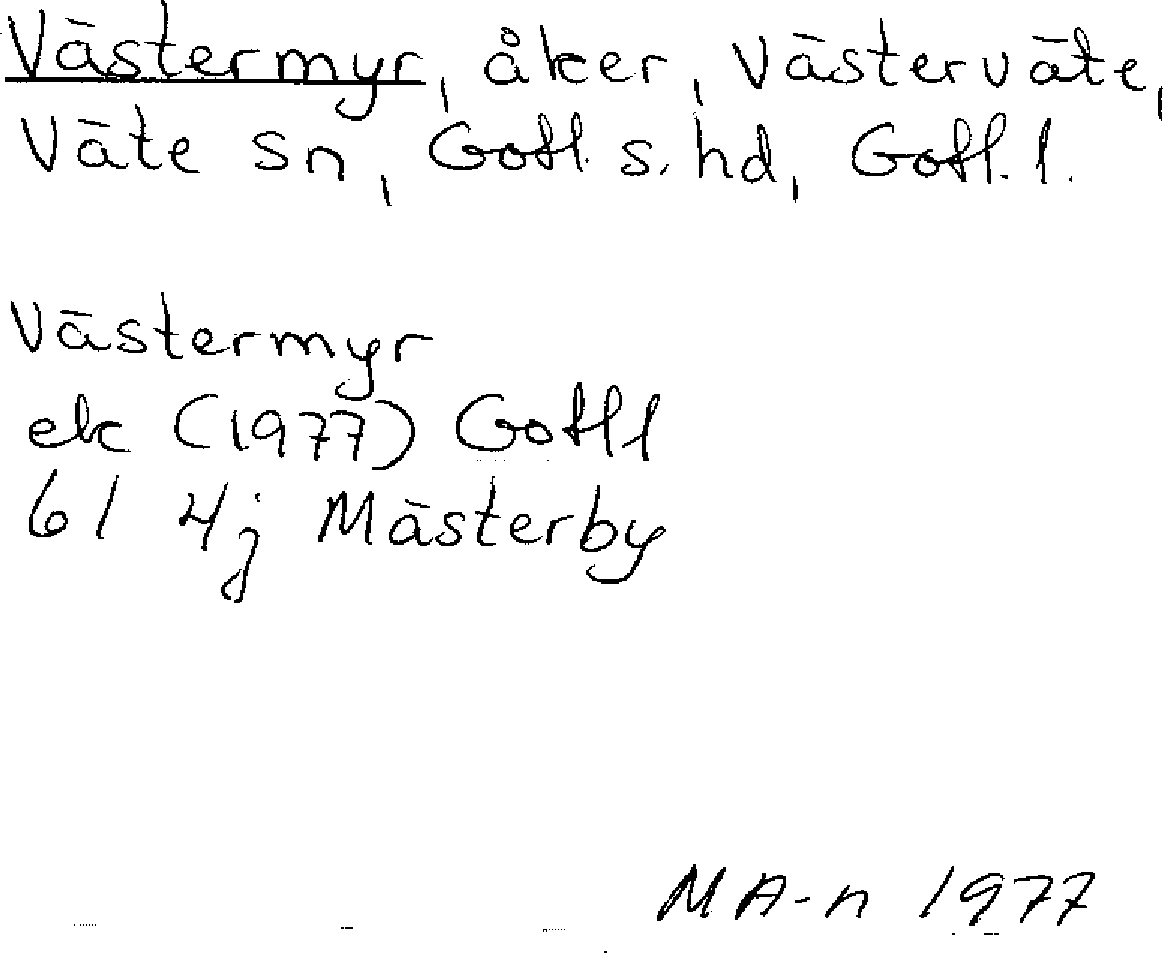 Västermyr, åker, Västerväte,
Väte sn, Gotl. s. hd, Gotl. l.
Västermyr
ek (1977) Gotl l
6I 4j Mästerby
MA-n 1977